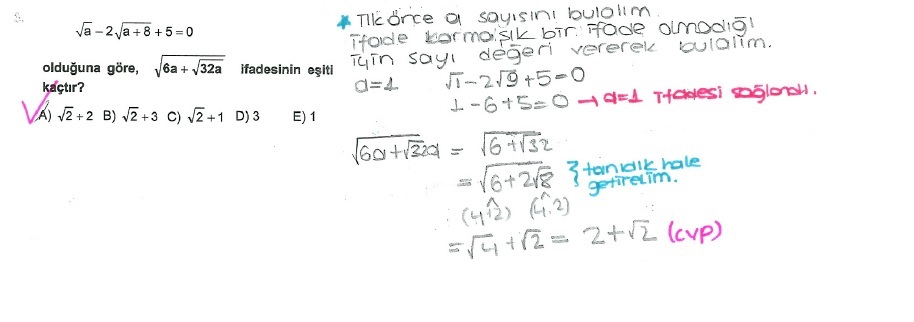 √a − 2√(a+8) + 5 = 0
olduğuna göre, √(6a + √(32a)) ifadesinin eşiti
kaçtır?
A) √2 + 2 B) √2 + 3 C) √2 + 1 D) 3 E) 1
* İlk önce a sayısını bulalım.
İfade karmaşık bir ifade olmadığı
için sayı değeri vererek bulalım.
a=1 √1 − 2√9 + 5 = 0
1 − 6 + 5 = 0 → a=1 ifadesi sağlandı.
√(6a+√32a) = √(6+√32)
= √(6+2√8) } tanıdık hale
getirelim.
(4+2) (4.2)
= √4 + √2 = 2+√2 (cvp)